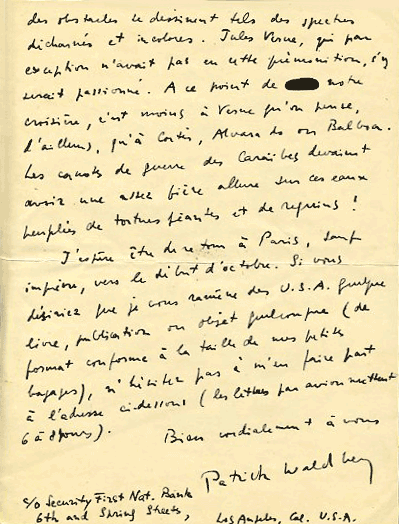 des obstacles se dessinent tels des spectres
décharnés et incolores. Jules Verne, qui par
exception n'avait pas eu cette prémonition, s'y
serait passionné. A ce point de notre
croisière, c'est moins à Verne qu'on pense,
d'ailleurs, qu'à Cortès, Alvarado ou Balboa.
Les canots de guerre des Caraïbes devaient
avoir une assez fière allure sur ces eaux
peuplées de tortues géantes et de requins !
J'espère être de retour à Paris, sauf
imprévu, vers le début d'octobre. Si vous
désiriez que je vous ramène des U.S.A. quelque
livre, publication ou objet quelconque (de
format conforme à la taille de mes petits
bagages), n'hésitez pas à m'en faire part
à l'adresse ci-dessous (les lettres par avion mettent
6 à 8 jours).
Bien cordialement à vous
Patrick Waldberg
c/o Security First Nat. Bank
6th and Spring Streets,
Los Angeles, Cal. U.S.A.